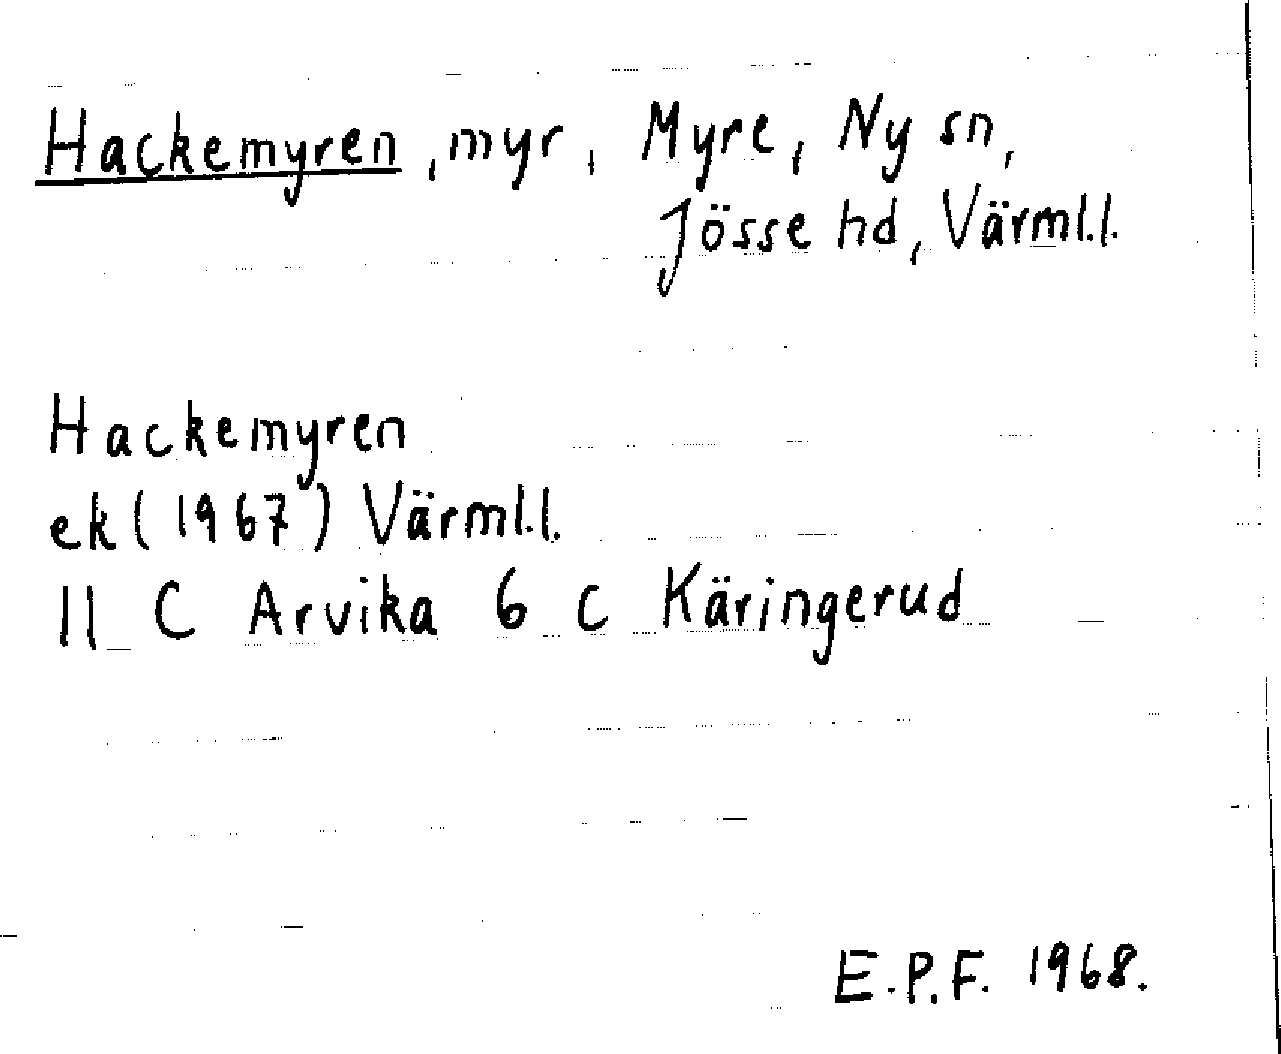 Hackemyren, myr, Myre, Ny sn,
Jösse hd, Värml.l.
Hackemyren
ek (1967) Värml.l.
11 C Arvika 6 c Käringerud
E.P.F. 1968.